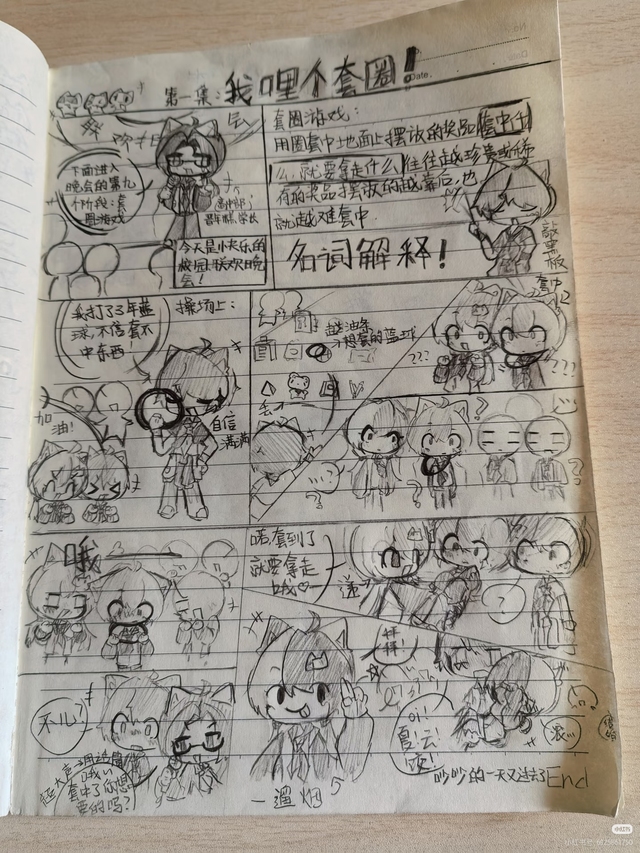 第一集:我哩个套圈!
Date.
下面进入
晚会的第九
个阶段:套
圈游戏
今天是小快乐的
校园上联欢日晚
会!
套圈游戏:
用圈套中地面上摆放的奖品套中什
么,就要拿走什么
往往越珍贵或稀
有的奖品摆放的越靠后,也
就越难套中
名词解释!
敲黑板
我打了3年蓝
球,不信套不
中东西!
操场上:
加油!
自信
满满
想套的蓝球
丢
套中
???
???
?
?
哦
喏,套到了
就要拿走
哦♡
?
不儿?
哦
套中了你想
要的吗?!
一遛烟
滚
吵吵的一天又过去了End
小红书